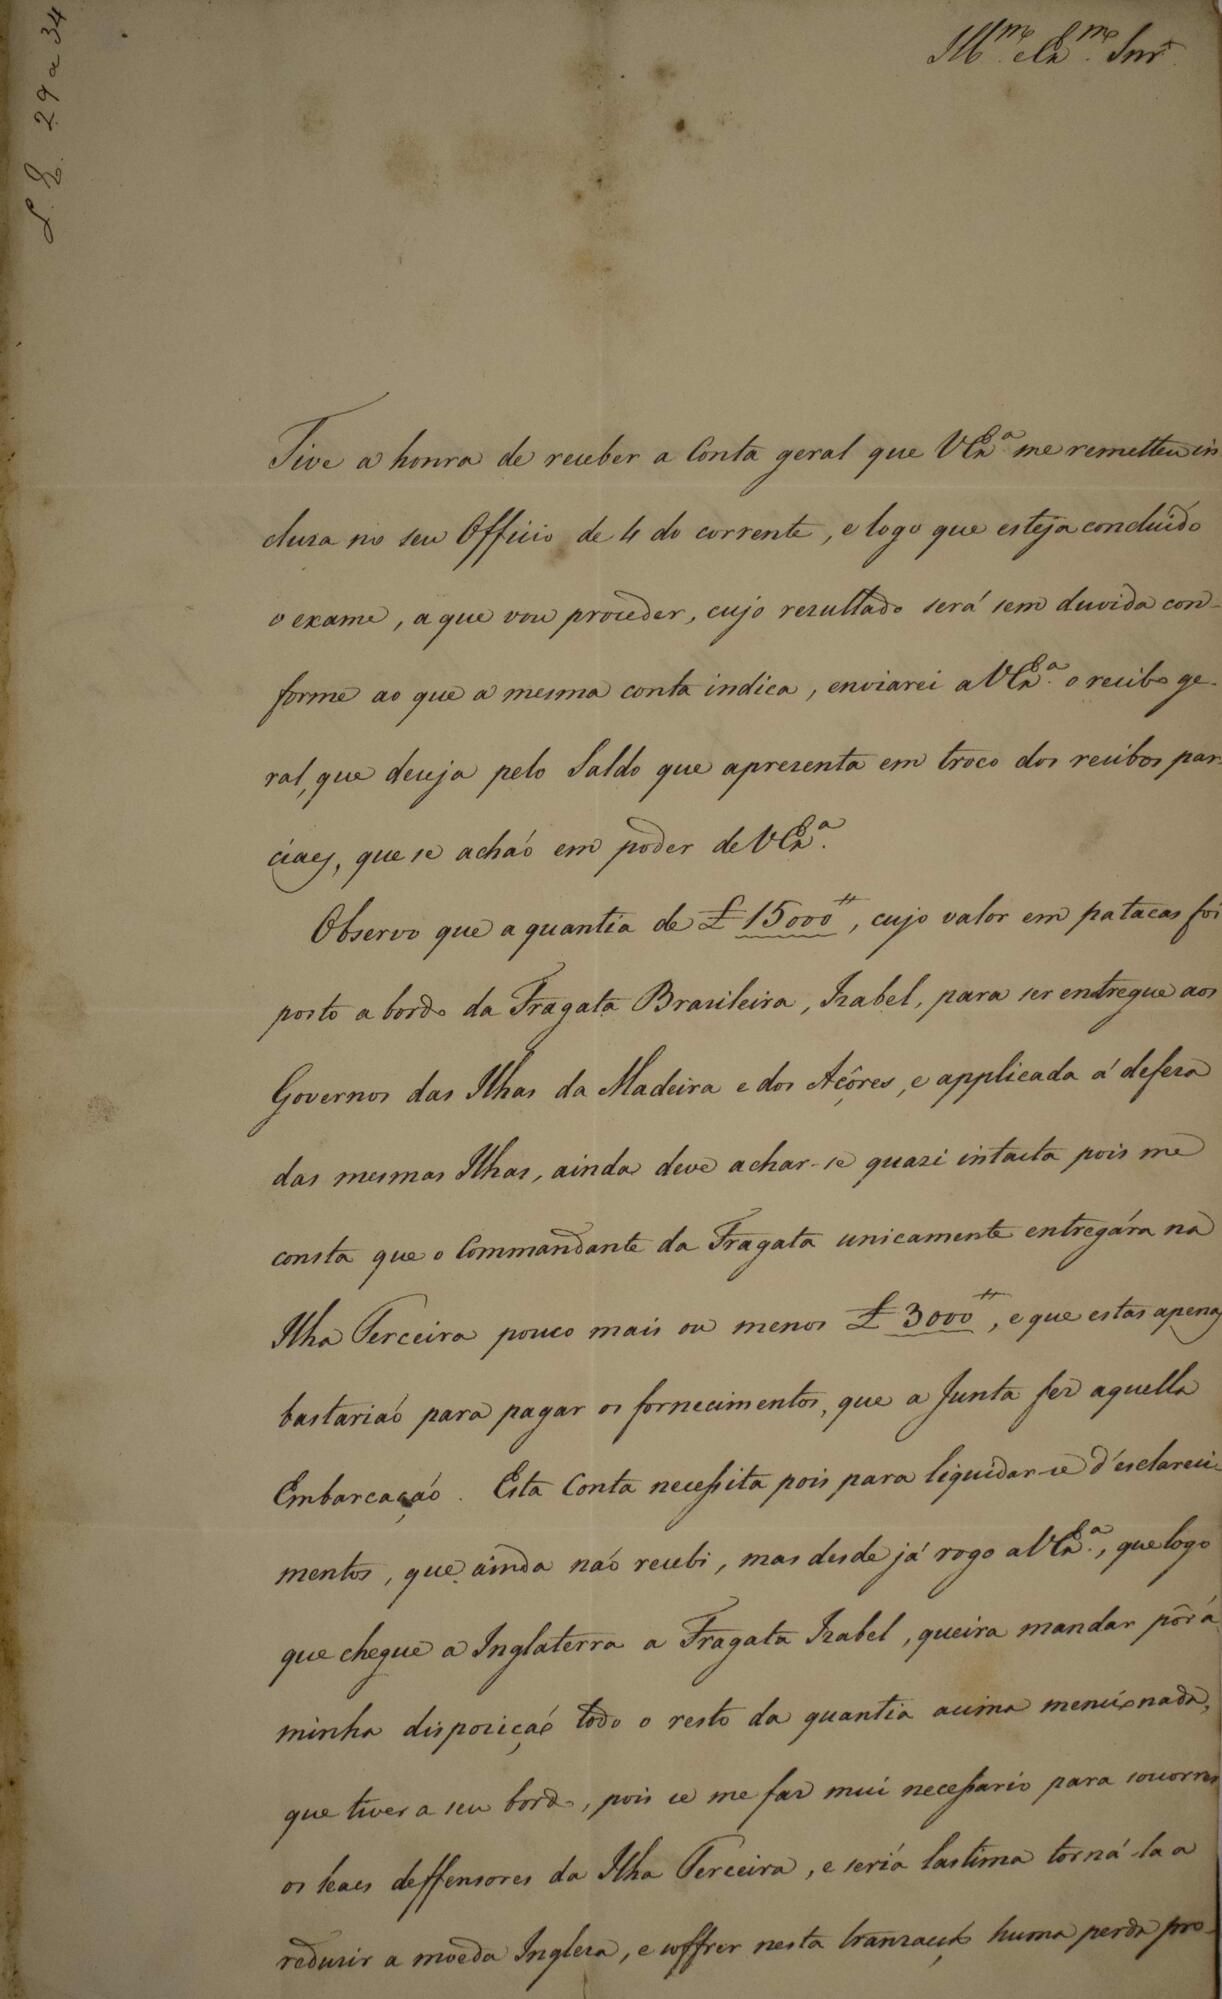 Ill.mo e Ex.mo Snr.
Tive a honra de receber a Conta geral que V Ex.a me remetteu in
cluza no seu Officio de 4 do corrente, e logo que esteja concluido
o exame, a que vou proceder, cujo rezultado será sem duvida con-
forme ao que a mesma conta indica, enviarei a V Ex.a o recibo ge-
ral, que deseja pelo Saldo que aprezenta em troco dos recibos par-
ciaes, que se achaõ em poder de V Ex.a
Observo que a quantia de £ 15000", cujo valor em patacas foi
posto a bordo da Fragata Brazileira, Izabel, para ser entregue aos
Governos das Ilhas da Madeira e dos Açôres, e applicada á defeza
das mesmas Ilhas, ainda deve achar-se quazi intacta pois me
consta que o Commandante da Fragata unicamente entregára na
Ilha Terceira pouco mais ou menos £ 3000", e que estas apenas
bastariaõ para pagar os fornecimentos, que a Junta fez aquella
Embarcaçaõ. Esta Conta necessita pois para liquidar-se d'esclareci-
mentos, que ainda naõ recebi, mas desde já rogo a V Ex.a, que logo
que chegue a Inglaterra a Fragata Izabel, queira mandar pôr á
minha dispoziçaõ todo o resto da quantia acima mencionada,
que tiver a seu bordo, pois se me faz mui necessario para soccorrer
os leaes deffensores da Ilha Terceira, e seriá lastima torná-la a
reduzir a moeda Ingleza, e soffrer nesta tranzacçaõ huma perda pro-
L. E. 29 a 34